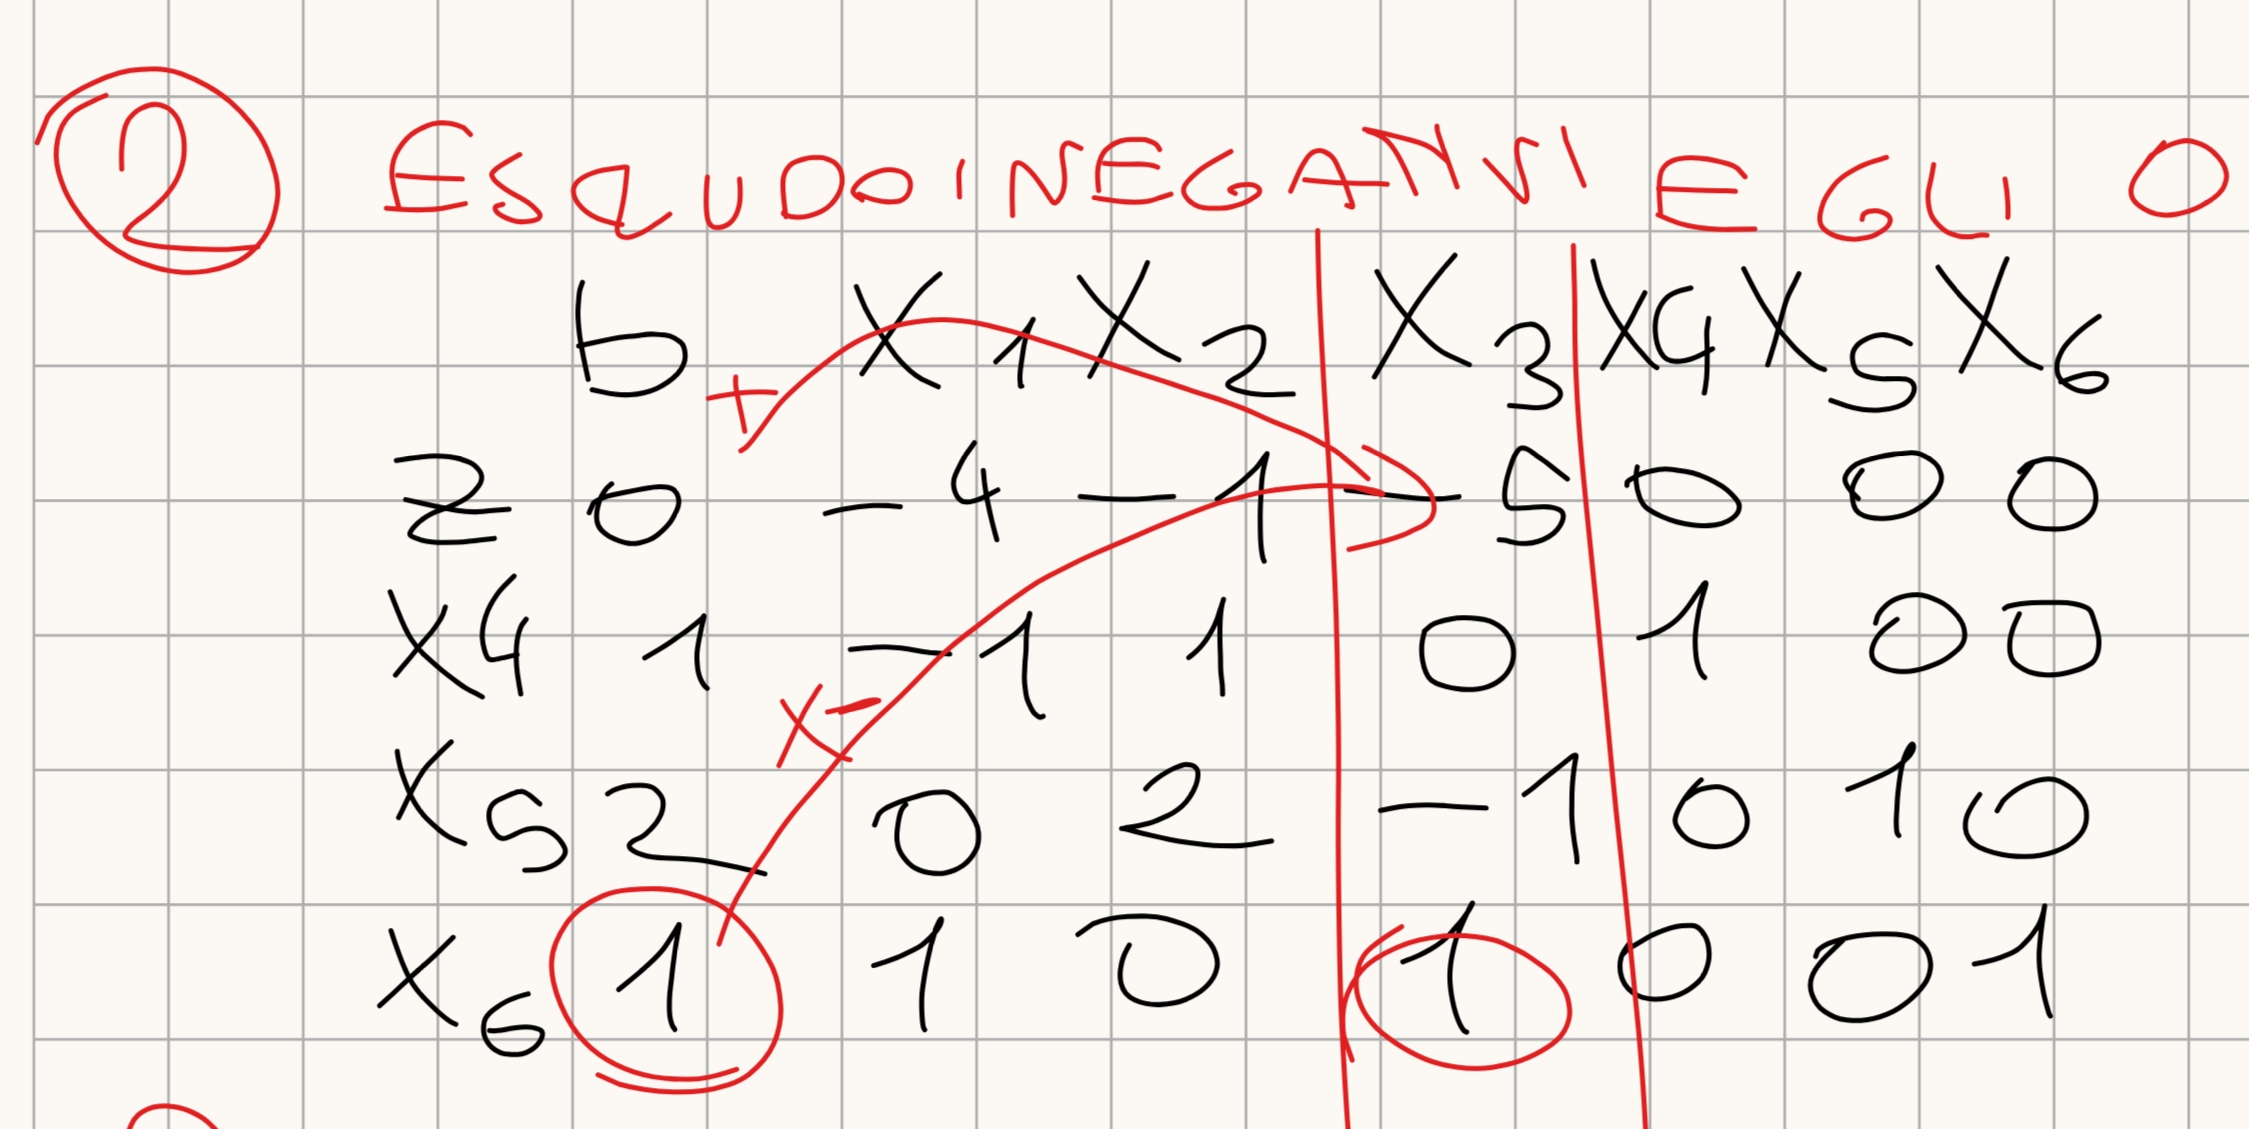 2 ESQUDOI NEGATIVI E GLI 0
b X1 X2 X3 X4 X5 X6
+
Z 0 -4 -1 -5 0 0 0
X4 1 -1 1 0 1 0 0
X-
X5 2 0 2 -1 0 1 0
X6 1 1 0 1 0 0 1